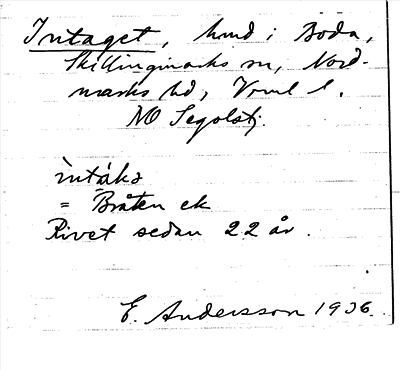 Intaget, hmd i Boda,
Skillingmarks sn, Nord-
marks hd, Vrml l.
NO Segolstj.
ìntáka
= Bråten ek
Rivet sedan 22 år.
E. Andersson 1936.